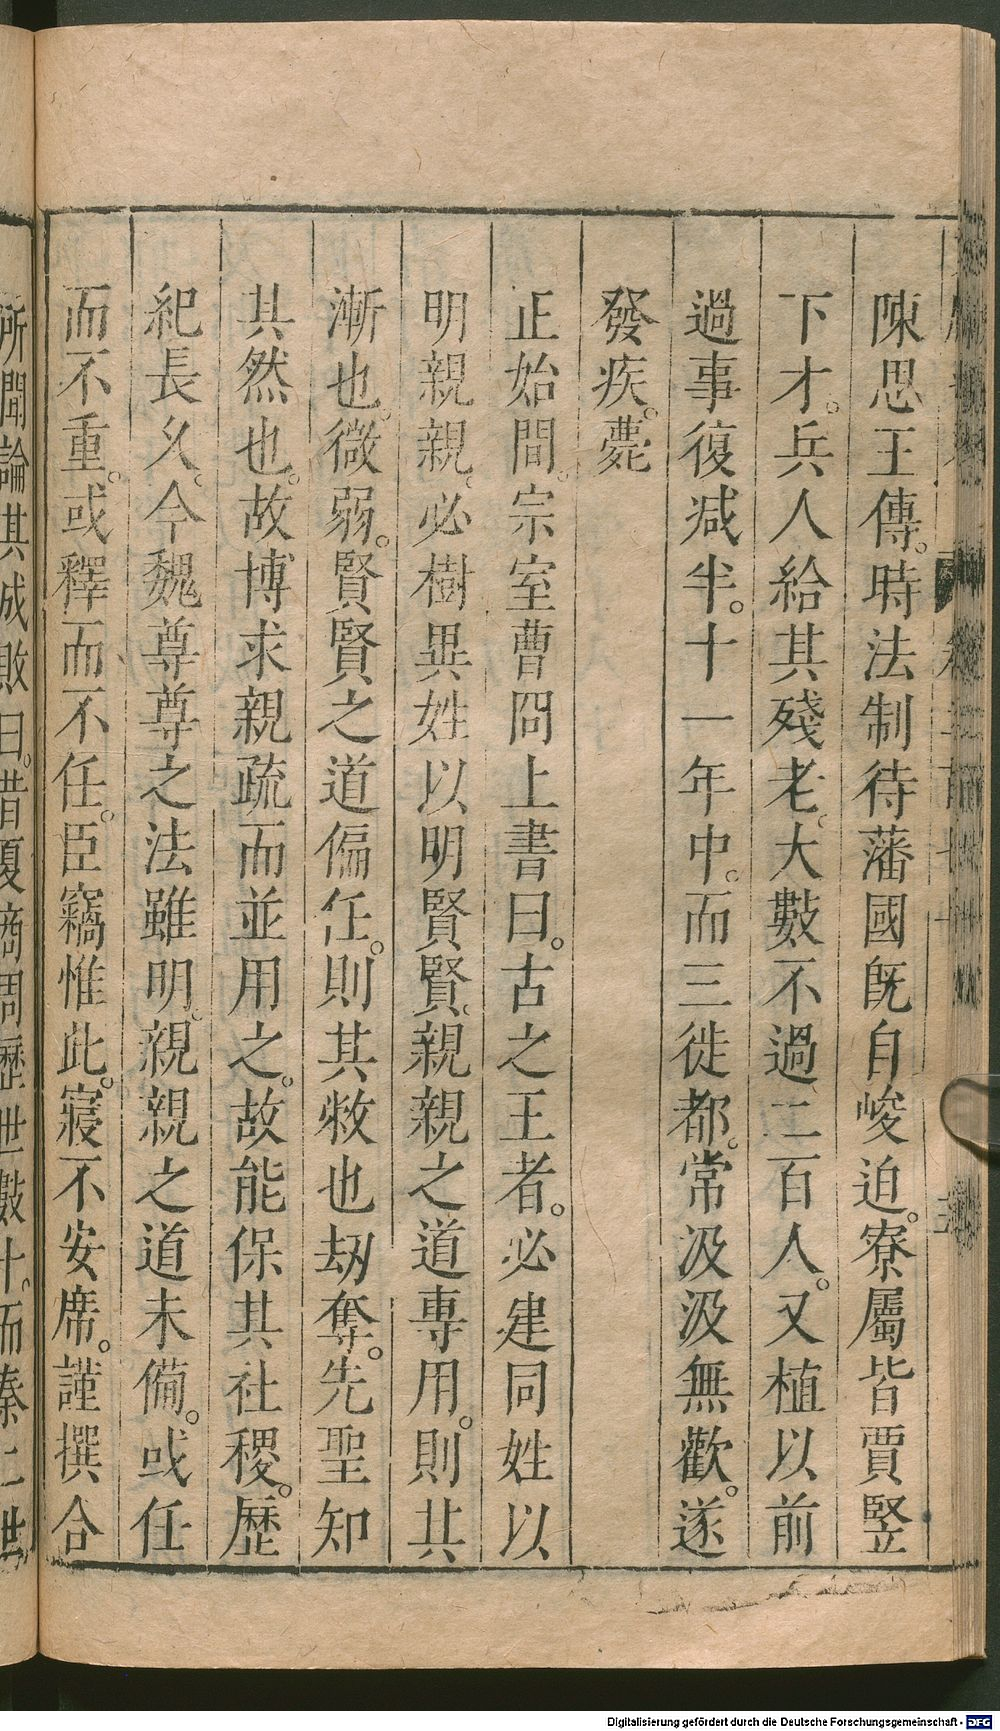 陳思王傳。時法制待藩國旣自峻迫。寮屬皆賈竪
下才。兵人給其殘老。大數不過二百人。又植以前
過事復减半。十一年中。而三徙都。常汲汲無歡。遂
發疾。薨
正始間。宗室曹冏上書曰。古之王者。必建同姓以
明親親。必樹異姓以明賢賢。親親之道專用。則其
漸也。微弱。賢賢之道偏任。則其敝也劫奪。先聖知
其然也。故博求親疏而並用之。故能保其社稷。歷
紀長久。今魏尊尊之法雖明。親親之道未備。或任
而不重。或釋而不任。臣竊惟此。寢不安席。謹撰合
所聞論其成敗曰。昔夏商周歷世數十。而秦二世
Digitalisierung gefördert durch die Deutsche Forschungsgemeinschaft - DFG